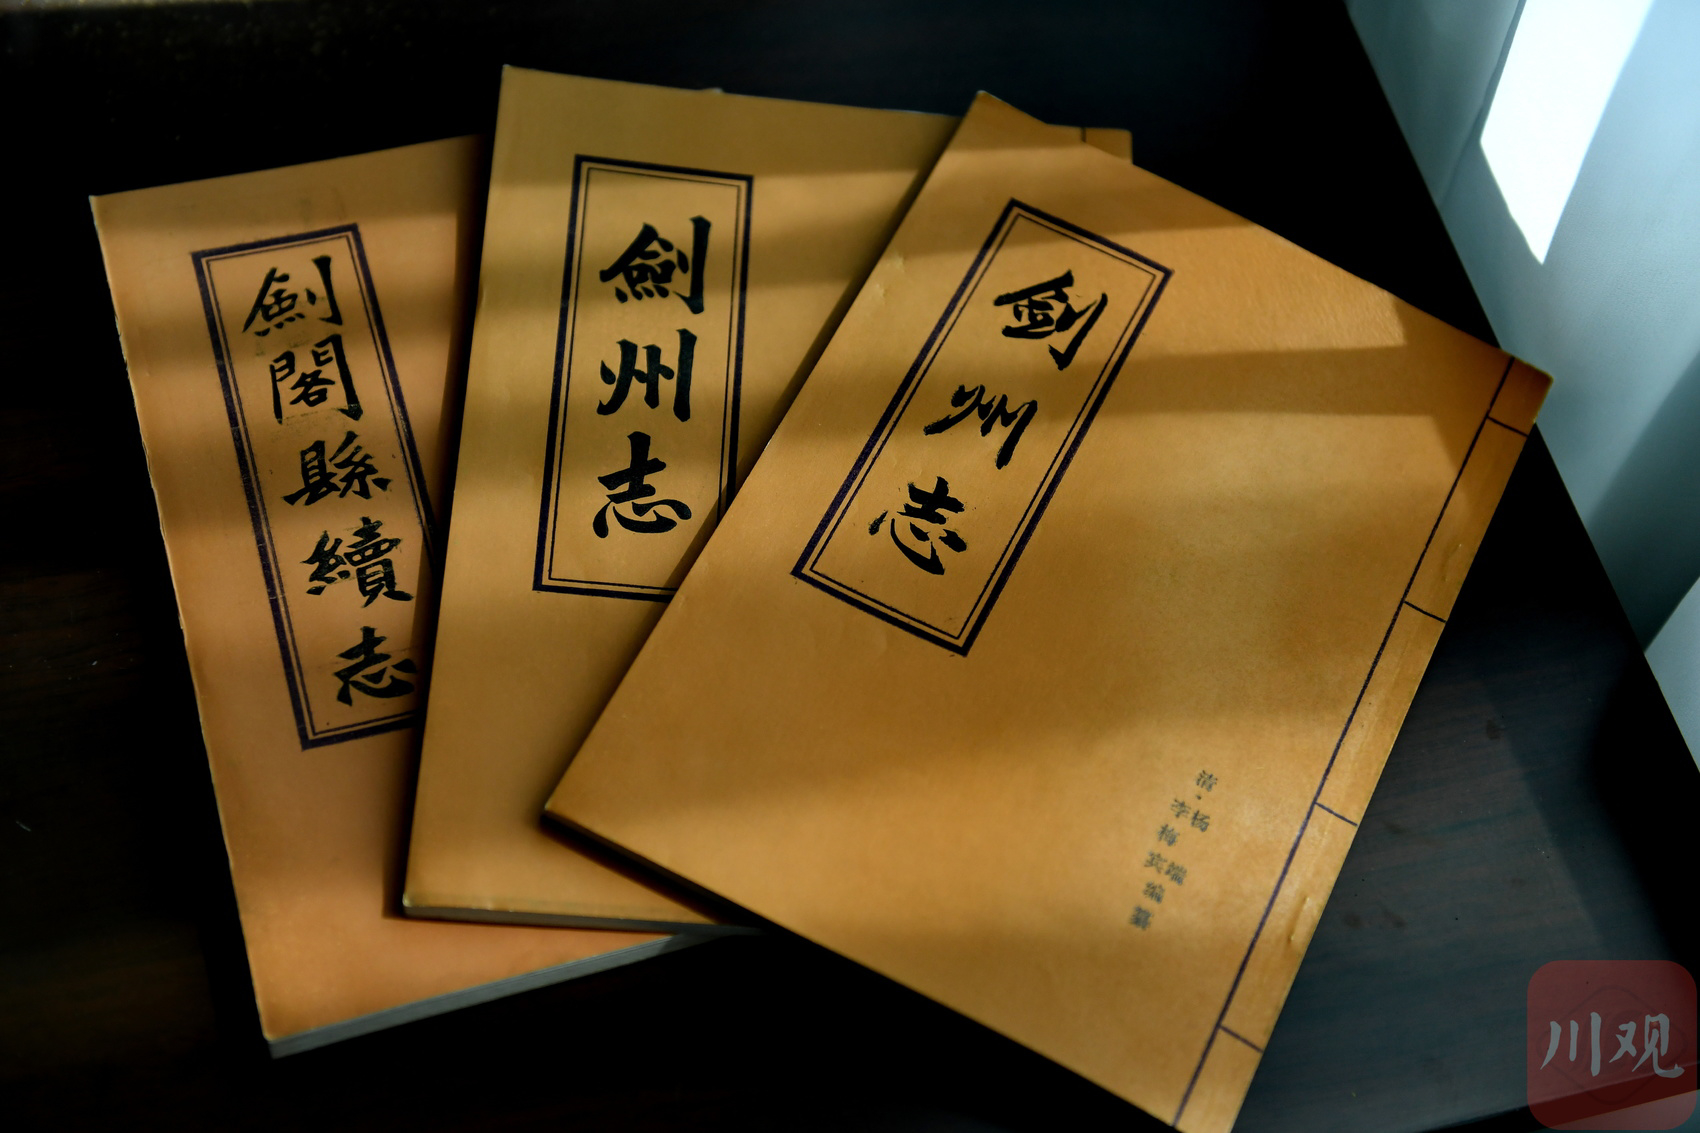 劍閣縣續志
劍州志
劍州志
清·李梅宾编纂
杨端
川观